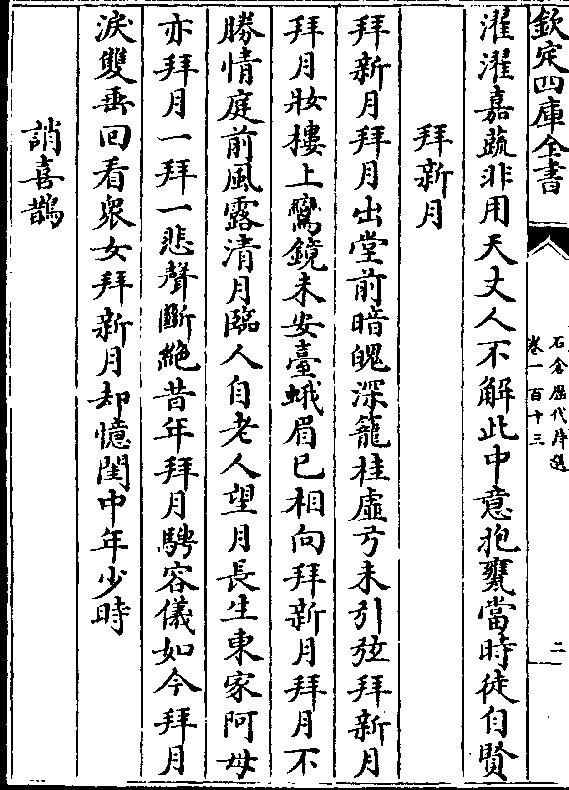 欽定四庫全書
石倉歷代詩選
卷一百十三
二
濯濯嘉蔬非用天丈人不解此中意抱甕當時徒自賢
拜新月
拜新月拜月出堂前暗魄深籠桂虛弓未引弦拜新月
拜月妝樓上鸞鏡未安臺蛾眉已相向拜新月拜月不
勝情庭前風露清月臨人自老人望月長生東家阿母
亦拜月一拜一悲聲斷絶昔年拜月騁容儀如今拜月
淚雙垂回看衆女拜新月却憶閨中年少時
誚喜鵲